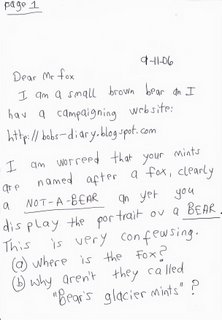 page 1
9-11-06
Dear Mr fox
I am a small brown bear an I
hav a campaigning website:
http://bobs-diary.blogspot.com
I am worreed that your mints
are named after a fox, clearly
a NOT-A-BEAR an yet you
display the portrait ov a BEAR.
This is very confewsing.
(a) where is the Fox?
(b) Why aren't they called
"Bear's glacier mints"?